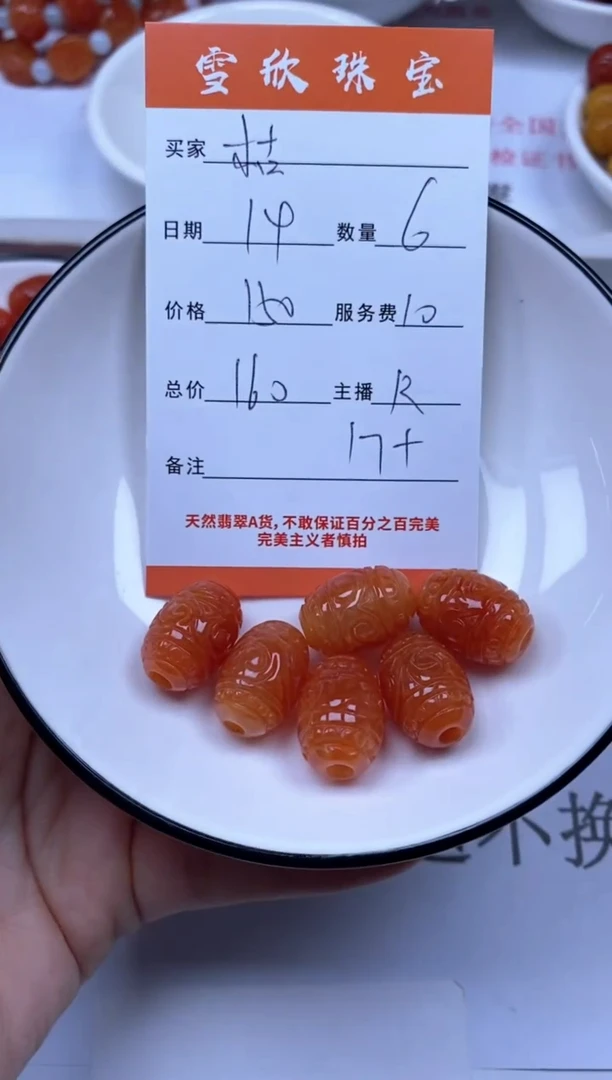 雪欣珠宝
买家 桂
日期 14 数量 6
价格 150 服务费 10
总价 160 主播 R
备注 17+
天然翡翠A货，不敢保证百分之百完美
完美主义者慎拍
全国
检证书
不换